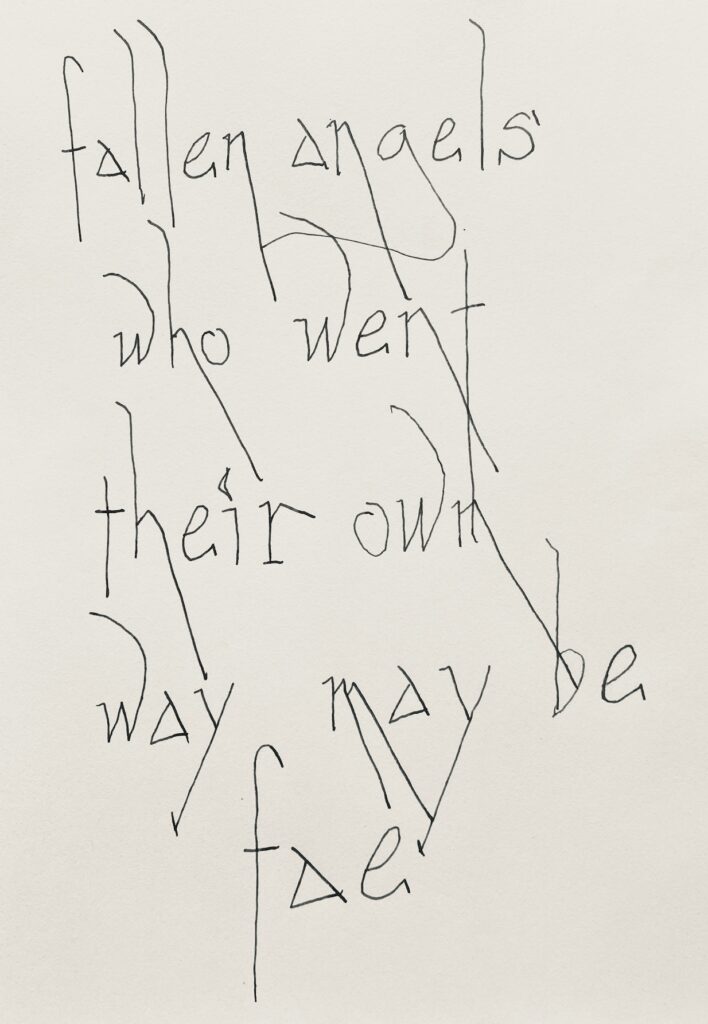 fallen angels
who went
their own
way may be
fae